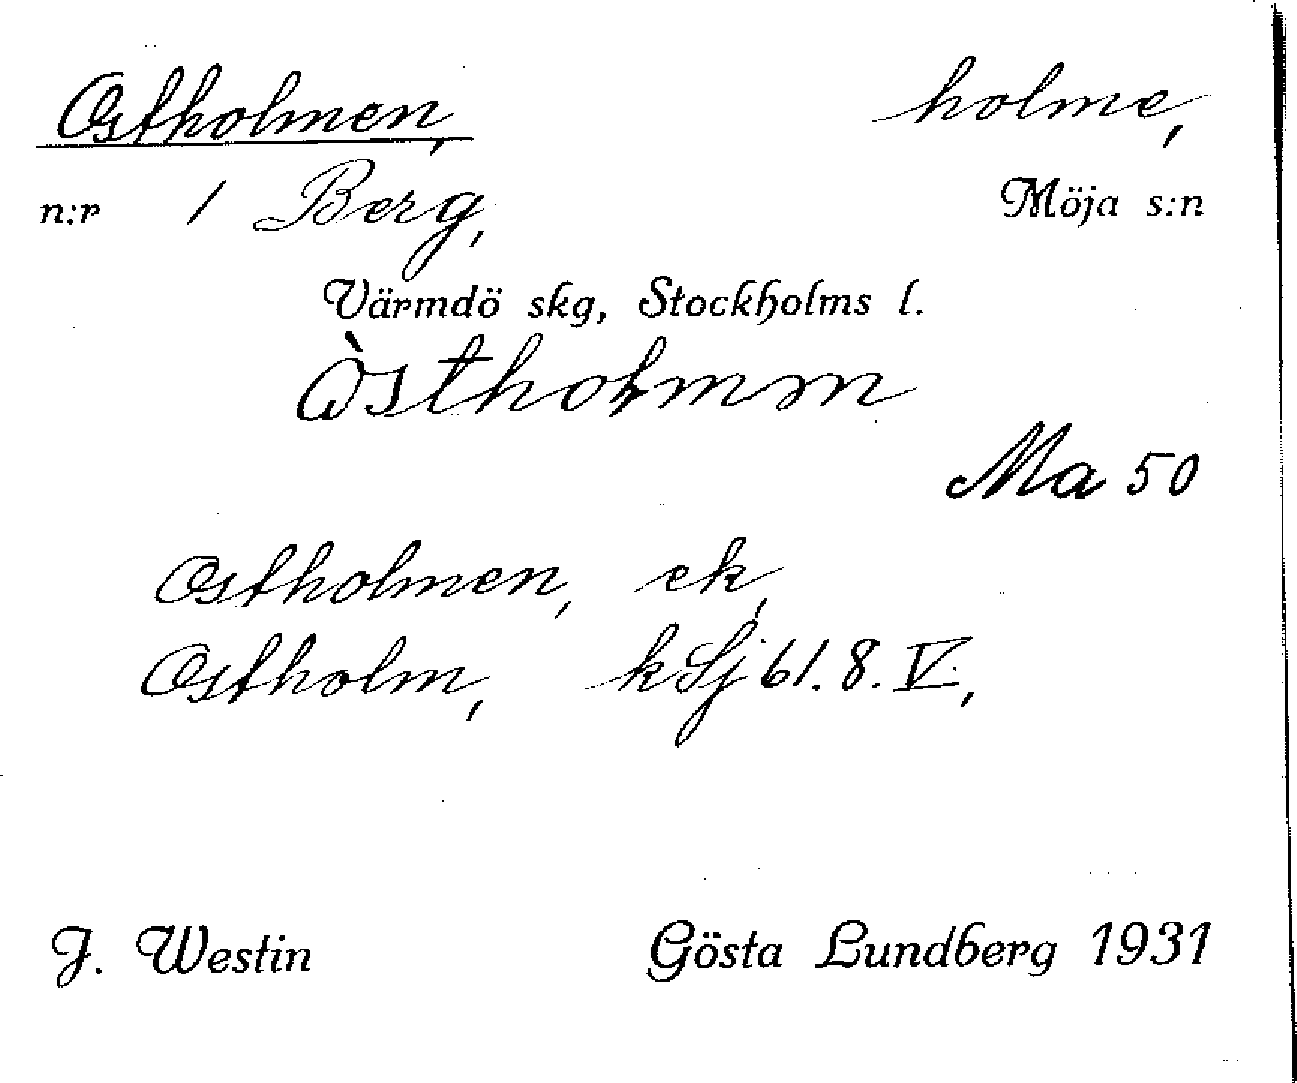 Ostholmen, holme,
n:r 1 Berg, Möja s:n
Värmdö skg, Stockholms l.
Òstholmm
Ma 50
Ostholmen, ek,
Ostholm, kSj 61. 8. V.,
J. Westin Gösta Lundberg 1931